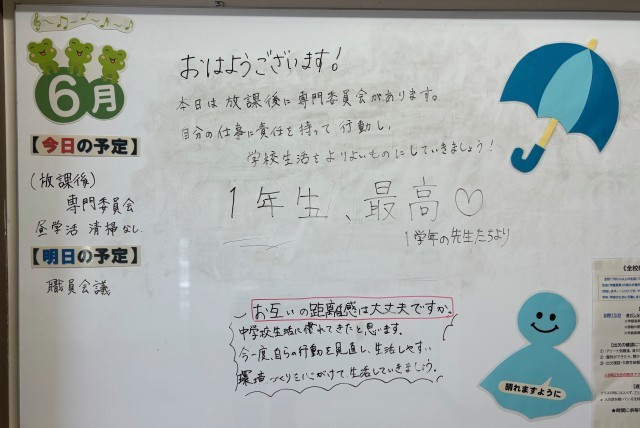 6月
おはようございます!
本日は放課後に専門委員会があります。
自分の仕事に責任を持って行動し、
学校生活をよりよいものにしていきましょう!
【今日の予定】
(放課後)
専門委員会
昼学活 清掃なし
【明日の予定】
職員会議
1年生、最高♡
1学年の先生たちより
お互いの距離感は大丈夫ですか。
中学校生活に慣れてきたと思います。
今一度、自らの行動を見直し、生活しやすい
環境づくりを心がけて生活していきましょう。
晴れますように